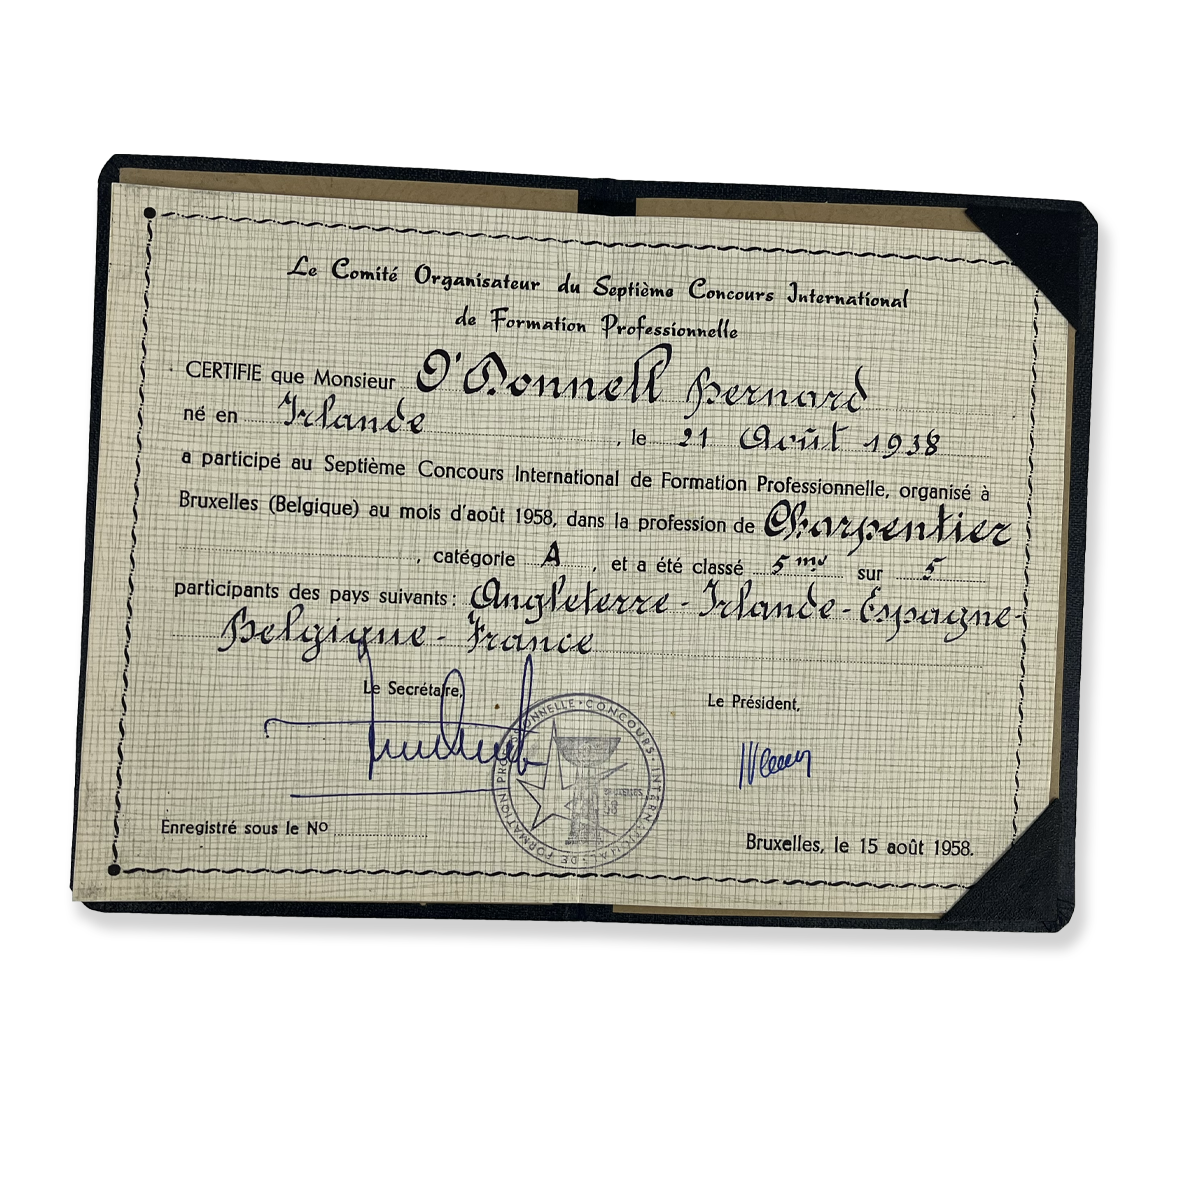 Le Comité Organisateur du Septième Concours International
de Formation Professionnelle
CERTIFIE que Monsieur O'Donnell Bernard
né en Irlande, le 21 Août 1938
a participé au Septième Concours International de Formation Professionnelle, organisé à
Bruxelles (Belgique) au mois d'août 1958, dans la profession de Charpentier
, catégorie A, et a été classé 5me sur 5
participants des pays suivants: Angleterre - Irlande - Espagne -
Belgique - France
Le Secrétaire,
Le Président,
CONCOURS INTERNATIONAL DE FORMATION PROFESSIONNELLE
BRUXELLES
58
Enregistré sous le No
Bruxelles, le 15 août 1958.